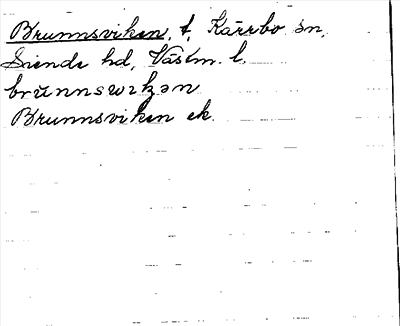 Brunnsviken, t, Kärrbo sn,
Siende hd, Västm. l.
brunnswikən
Brunnsviken ek.